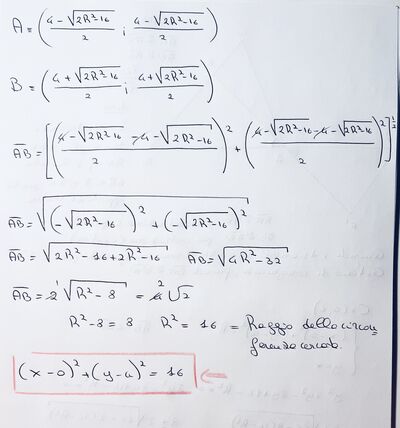 A = ( (4 - √(2R²-16))/2 ; (4 - √(2R²-16))/2 )
B = ( (4 + √(2R²-16))/2 ; (4 + √(2R²-16))/2 )
AB = [ ( (4 - √(2R²-16) - 4 - √(2R²-16))/2 )² + ( (4 - √(2R²-16) - 4 - √(2R²-16))/2 )² ]^(1/2)
AB = √( (-√(2R²-16))² + (-√(2R²-16))² )
AB = √(2R²-16+2R²-16) AB = √(4R²-32)
AB = 2¹ √(R²-8) = 4² √2
R²-8 = 8 R² = 16 = Raggio della circon
ferenza cercata.
(x-0)² + (y-4)² = 16